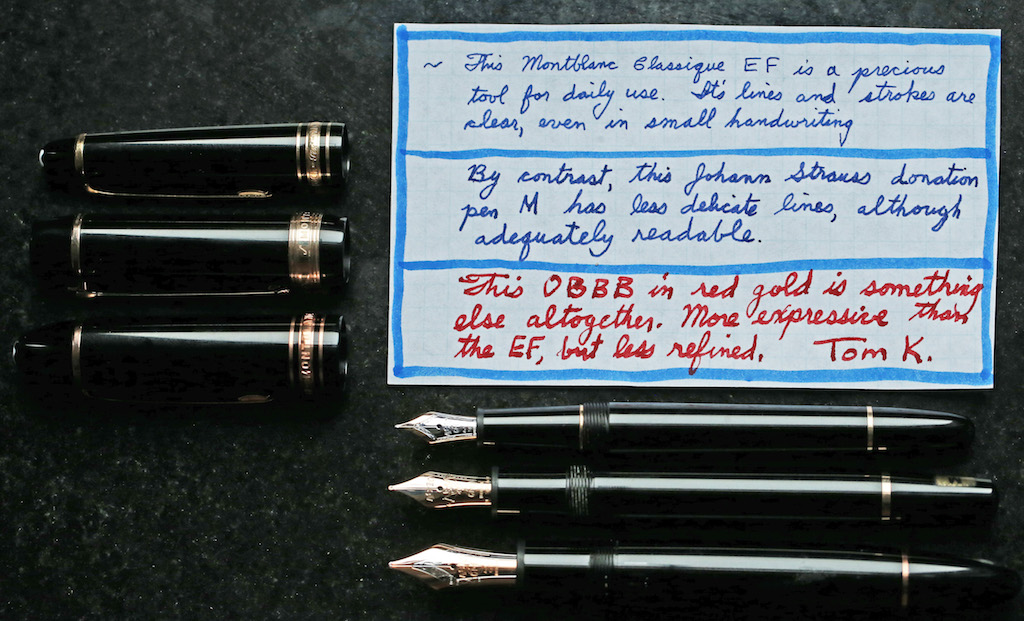 ~ This Montblanc Classique EF is a precious
tool for daily use. It's lines and strokes are
clear, even in small handwriting
By contrast, this Johann Strauss donation
pen M has less delicate lines, although
adequately readable.
This OBBB in red gold is something
else altogether. More expressive than
the EF, but less refined. Tom K.